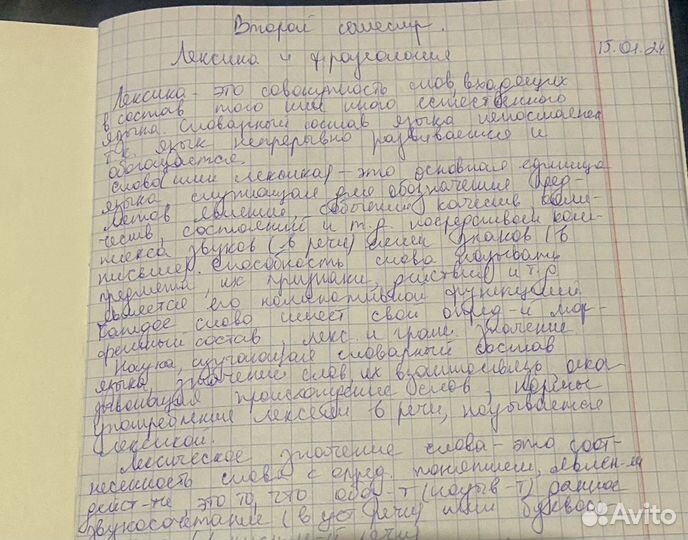 Второй семестр.
Лексика и фразеология
15.01.24
Лексика - это совокупность слов, входящих
в состав того или иного естественного
языка. Словарный состав языка непостоянен
т.к. язык непрерывно развивается и
обогащается.
Слово (или лексика) - это основная единица
языка служащая для обозначения пред-
метов явлений, событий, качеств, коли-
честв, состояний и т.р. посредством комп-
лекса звуков (-в речи) знаков (в
письме). Способность слова называть
предметы, их признаки, действия и т.р.
является его номинативной функцией.
Каждое слово имеет свой опред-й мор-
фемный состав, лекс. и грам. значение
Наука, изучающая словарный состав
языка, значение слов, их взаимосвязь
происхождение слов, нормы
употребления лексем в речи, называется
лексикой.
Лексическое значение слова - это соот-
несенность слова с опред. понятием, явлен-ем
действ-ем, это то, что обоз-т (назыв-т) данное
звукосочетание (в уст. речи) или буквос